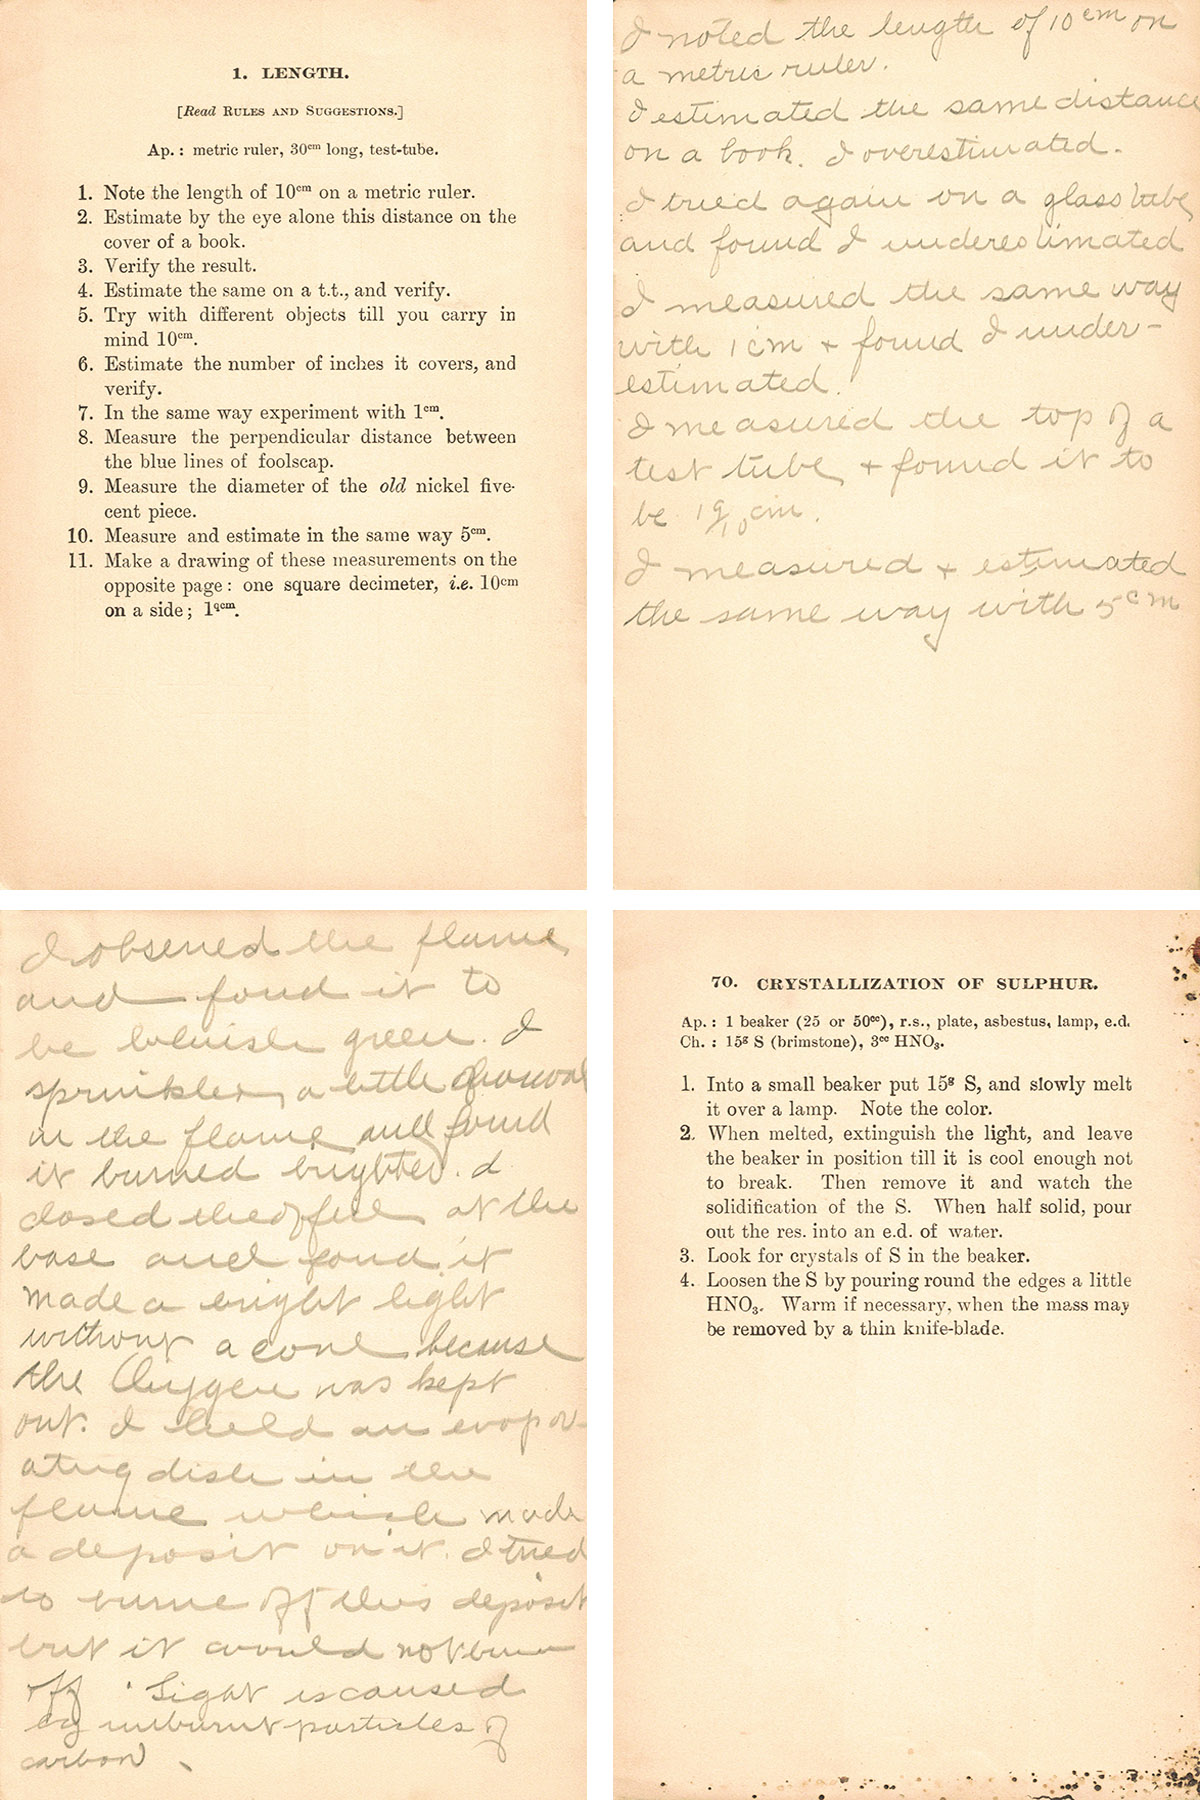 1. LENGTH.
[Read RULES AND SUGGESTIONS.]
Ap.: metric ruler, 30cm long, test-tube.
1. Note the length of 10cm on a metric ruler.
2. Estimate by the eye alone this distance on the
cover of a book.
3. Verify the result.
4. Estimate the same on a t.t., and verify.
5. Try with different objects till you carry in
mind 10cm.
6. Estimate the number of inches it covers, and
verify.
7. In the same way experiment with 1cm.
8. Measure the perpendicular distance between
the blue lines of foolscap.
9. Measure the diameter of the old nickel five-
cent piece.
10. Measure and estimate in the same way 5cm.
11. Make a drawing of these measurements on the
opposite page: one square decimeter, i.e. 10cm
on a side; 1qcm.
I noted the length of 10cm on
a metric ruler.
I estimated the same distance
on a book. I overestimated.
I tried again on a glass tube
and found I underestimated
I measured the same way
with 1cm + found I under-
estimated.
I measured the top of a
test tube + found it to
be 1 9/10 cm.
I measured + estimated
the same way with 5cm
I observed the flame
and foud it to
be bluish green. I
sprinkler a little charcoal
in the flame and found
it burned brighter. I
closed the at the
base and foud it
made a bright light
without a cone because
the Oxygen was kept
out. I held an evapor-
ating dish in the
flame which made
a deposit on it. I tried
to burne off this deposit
but it would not burn
off. Light is caused
by unburnt particles of
carbon
70. CRYSTALLIZATION OF SULPHUR.
Ap.: 1 beaker (25 or 50cc), r.s., plate, asbestus, lamp, e.d.
Ch.: 15g S (brimstone), 3cc HNO3.
1. Into a small beaker put 15g S, and slowly melt
it over a lamp. Note the color.
2. When melted, extinguish the light, and leave
the beaker in position till it is cool enough not
to break. Then remove it and watch the
solidification of the S. When half solid, pour
out the res. into an e.d. of water.
3. Look for crystals of S in the beaker.
4. Loosen the S by pouring round the edges a little
HNO3. Warm if necessary, when the mass may
be removed by a thin knife-blade.